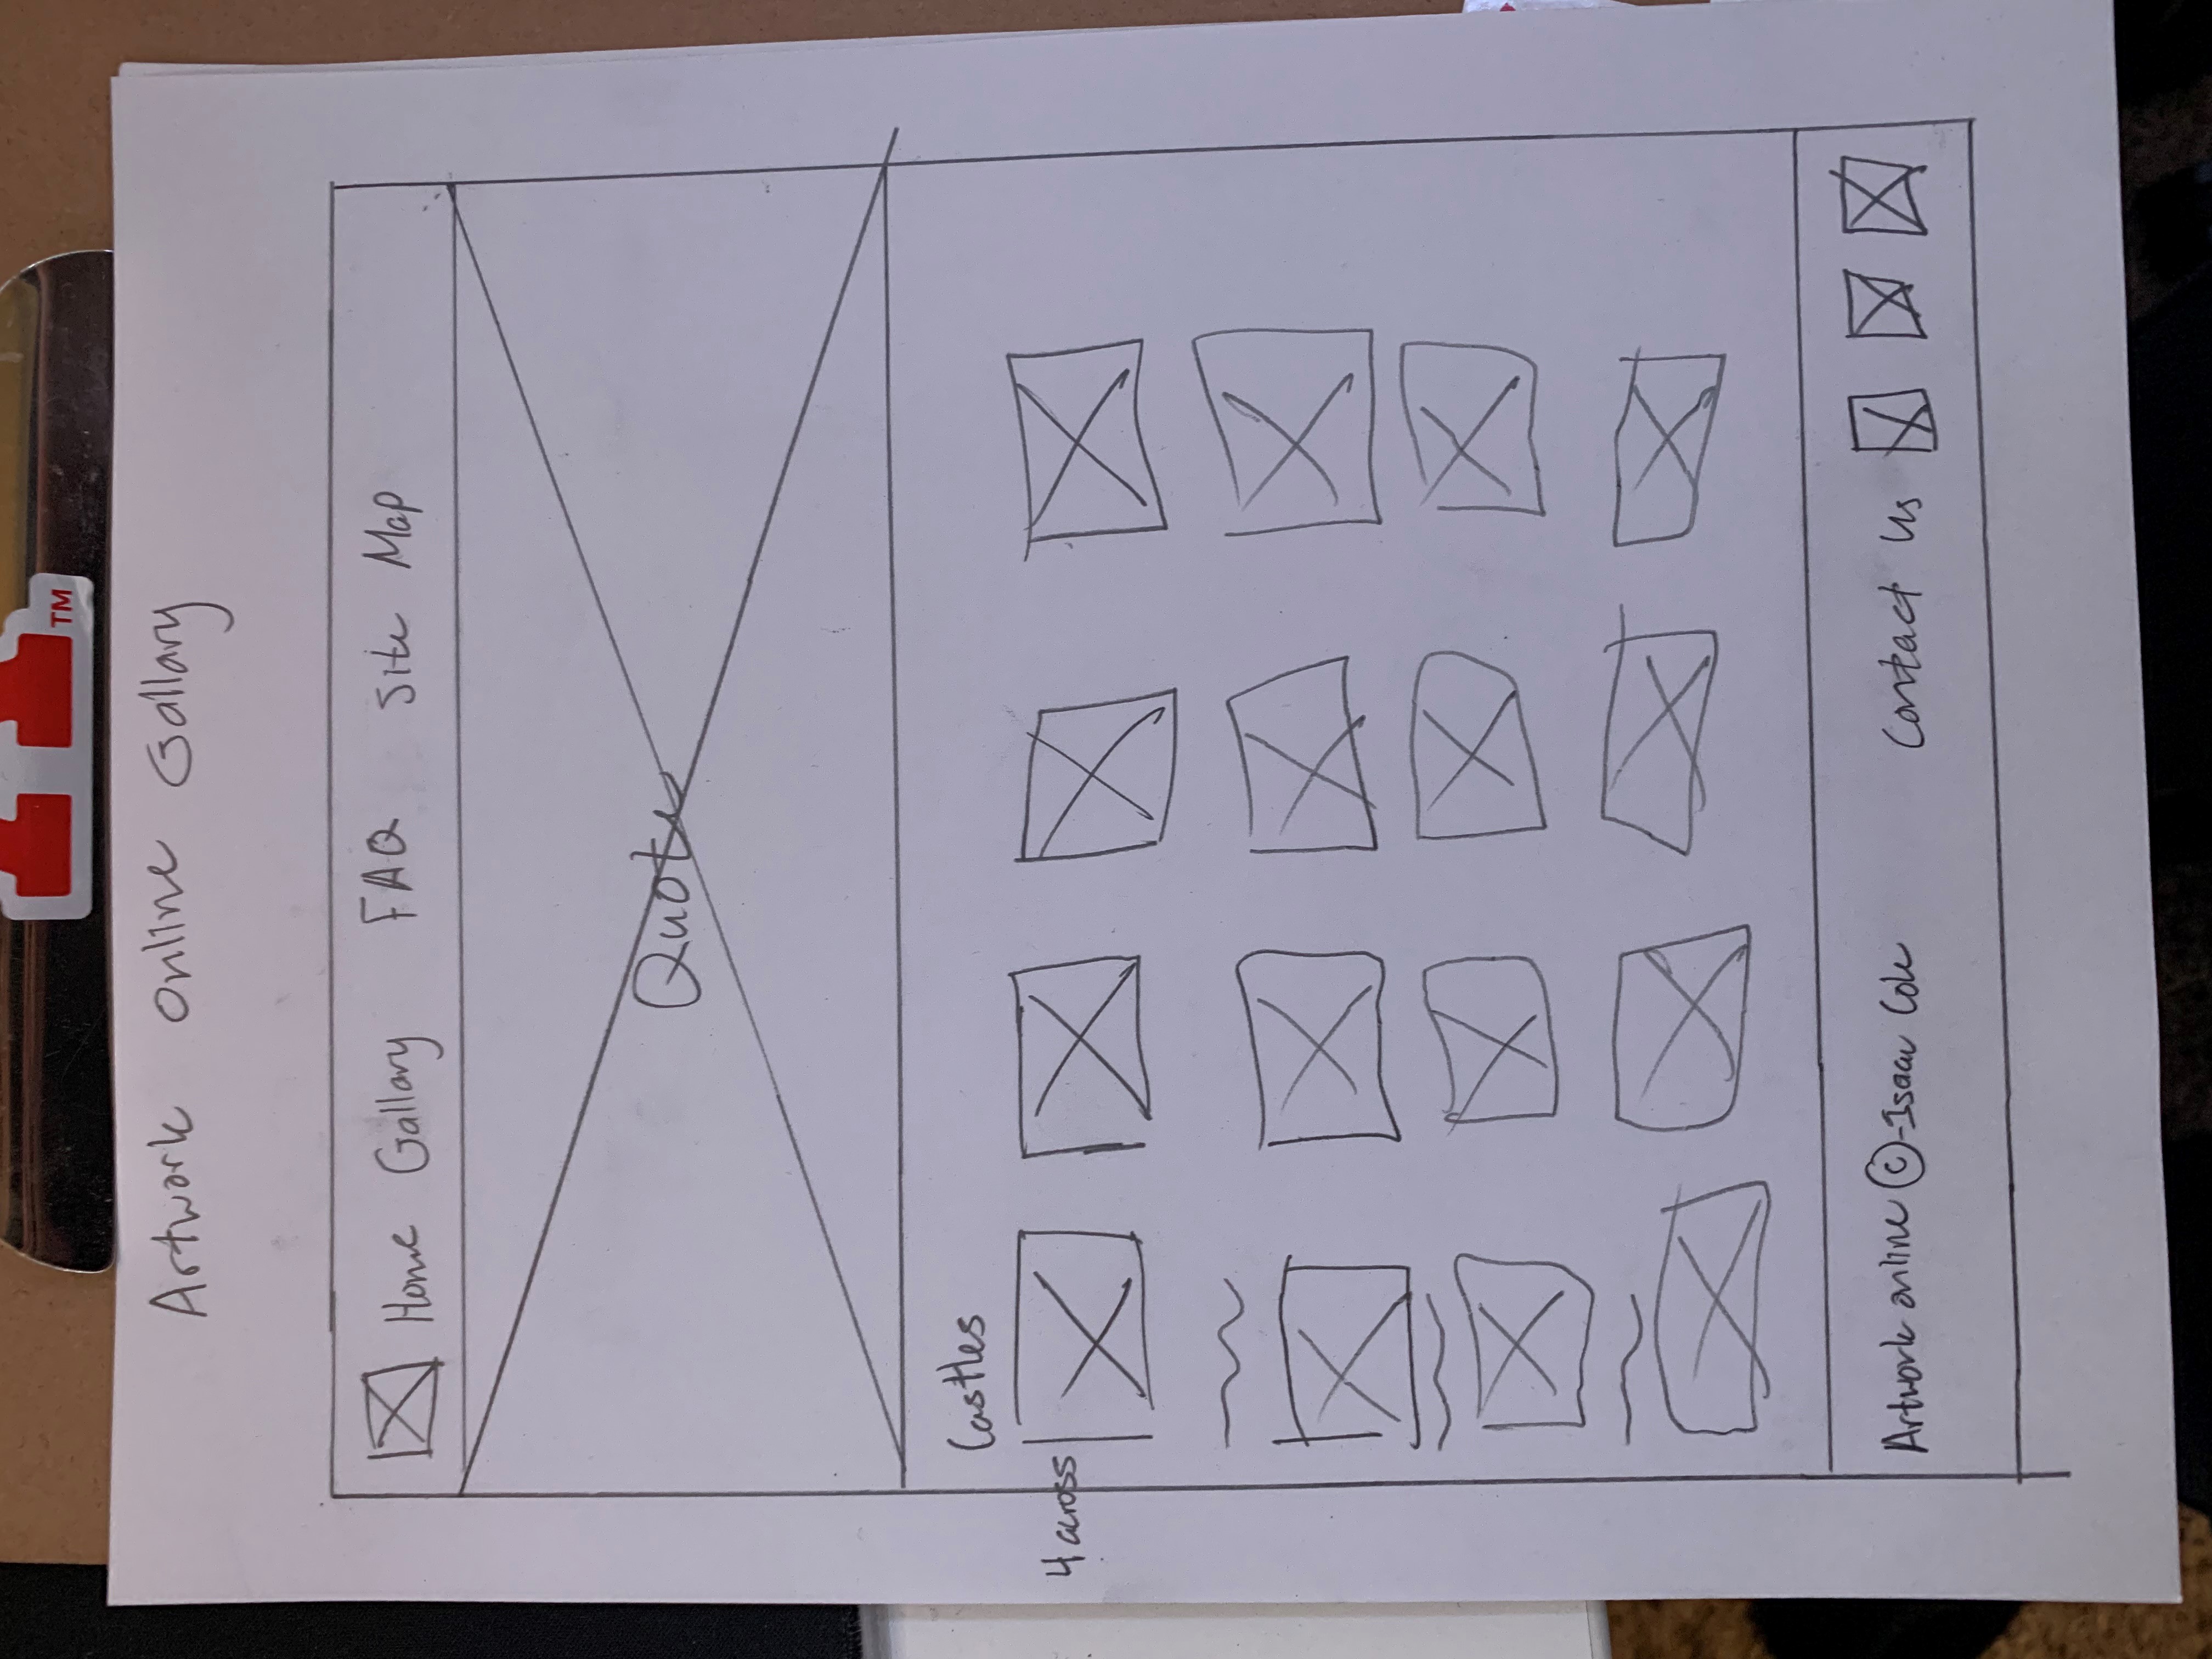 TM
Artwork Online Gallary
Home Gallary FAQ Site Map
Quote
Castles
4 across
Artwork online ©-Isaac Cole
Contact Us